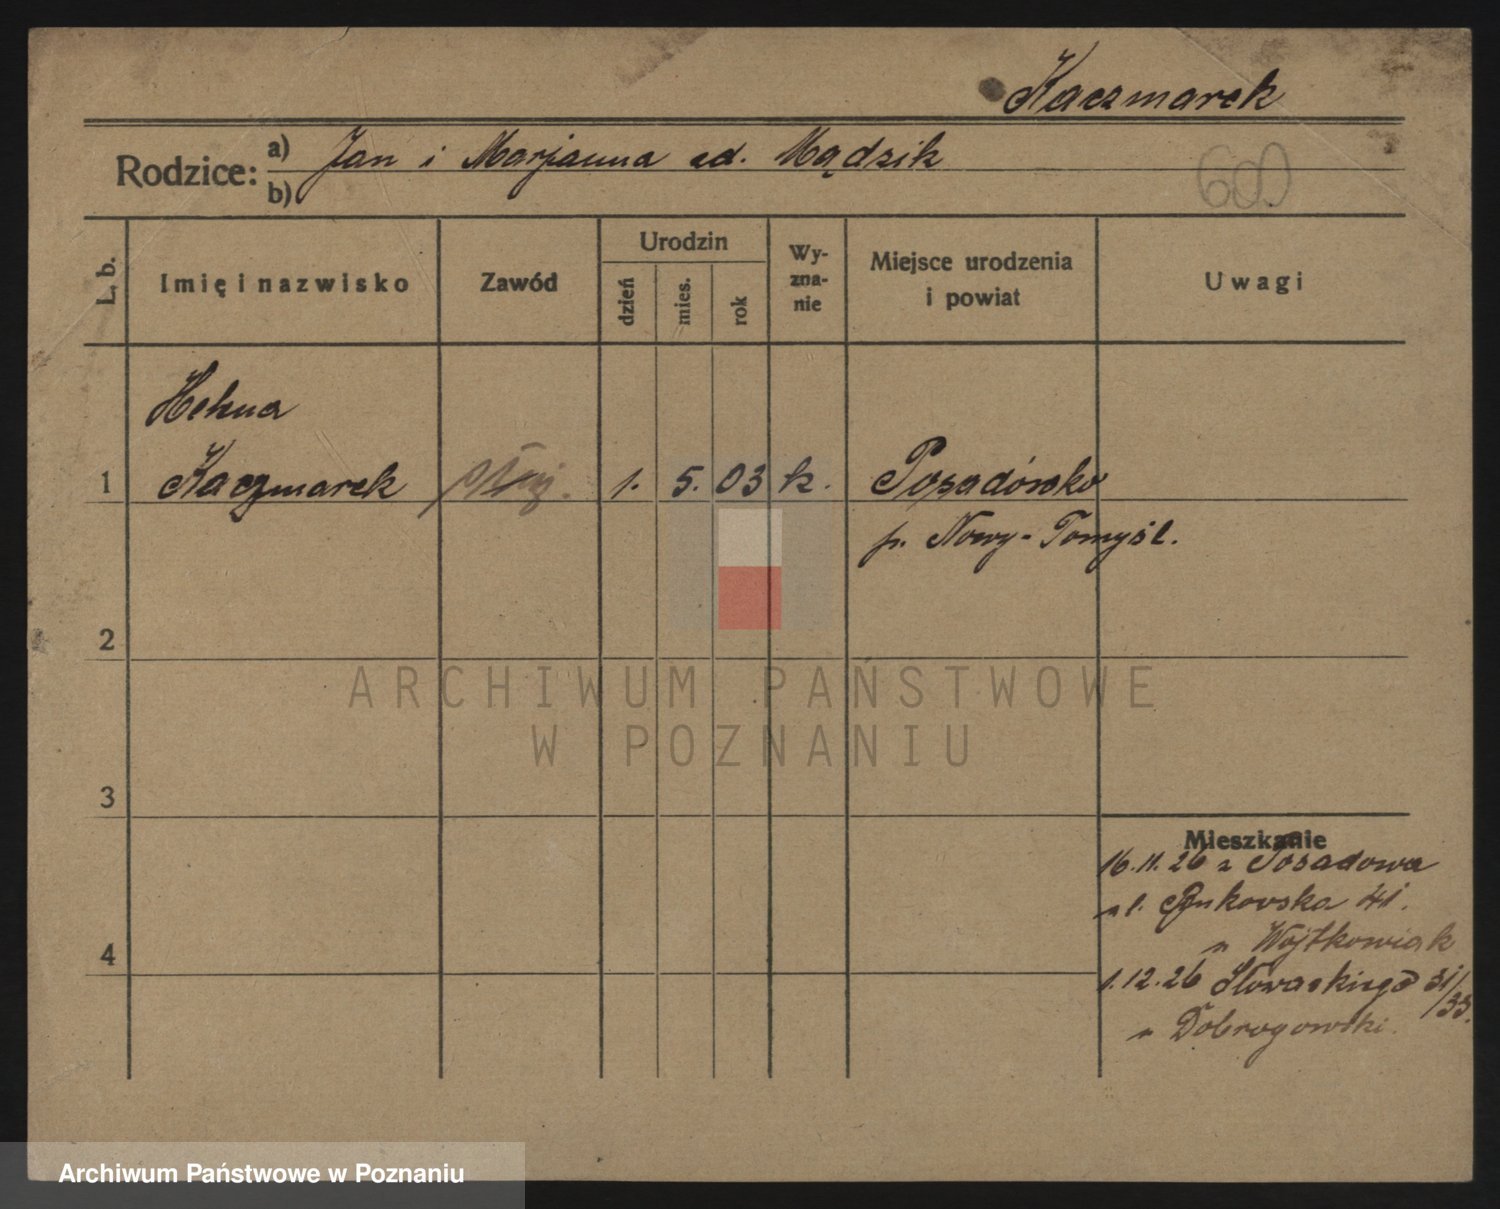 Kaczmarek
Rodzice: a) Jan i Marjanna ad. Mądzik
b)
600
L. b. Imię i nazwisko Zawód Urodzin dzień mies. rok Wy-zna-nie Miejsce urodzenia i powiat Uwagi
Helena
1 Kaczmarek służ. 1. 5. 03 k. Posadówko
p. Nowy-Tomyśl.
2
3
Mieszkanie
16.11.26 z Posadowa
ul. Bukowska 41.
4 u Wojtkowiak
1.12.26 Słowackiego 31/33.
u Dobrogowski.
ARCHIWUM PAŃSTWOWE
W POZNANIU
Archiwum Państwowe w Poznaniu